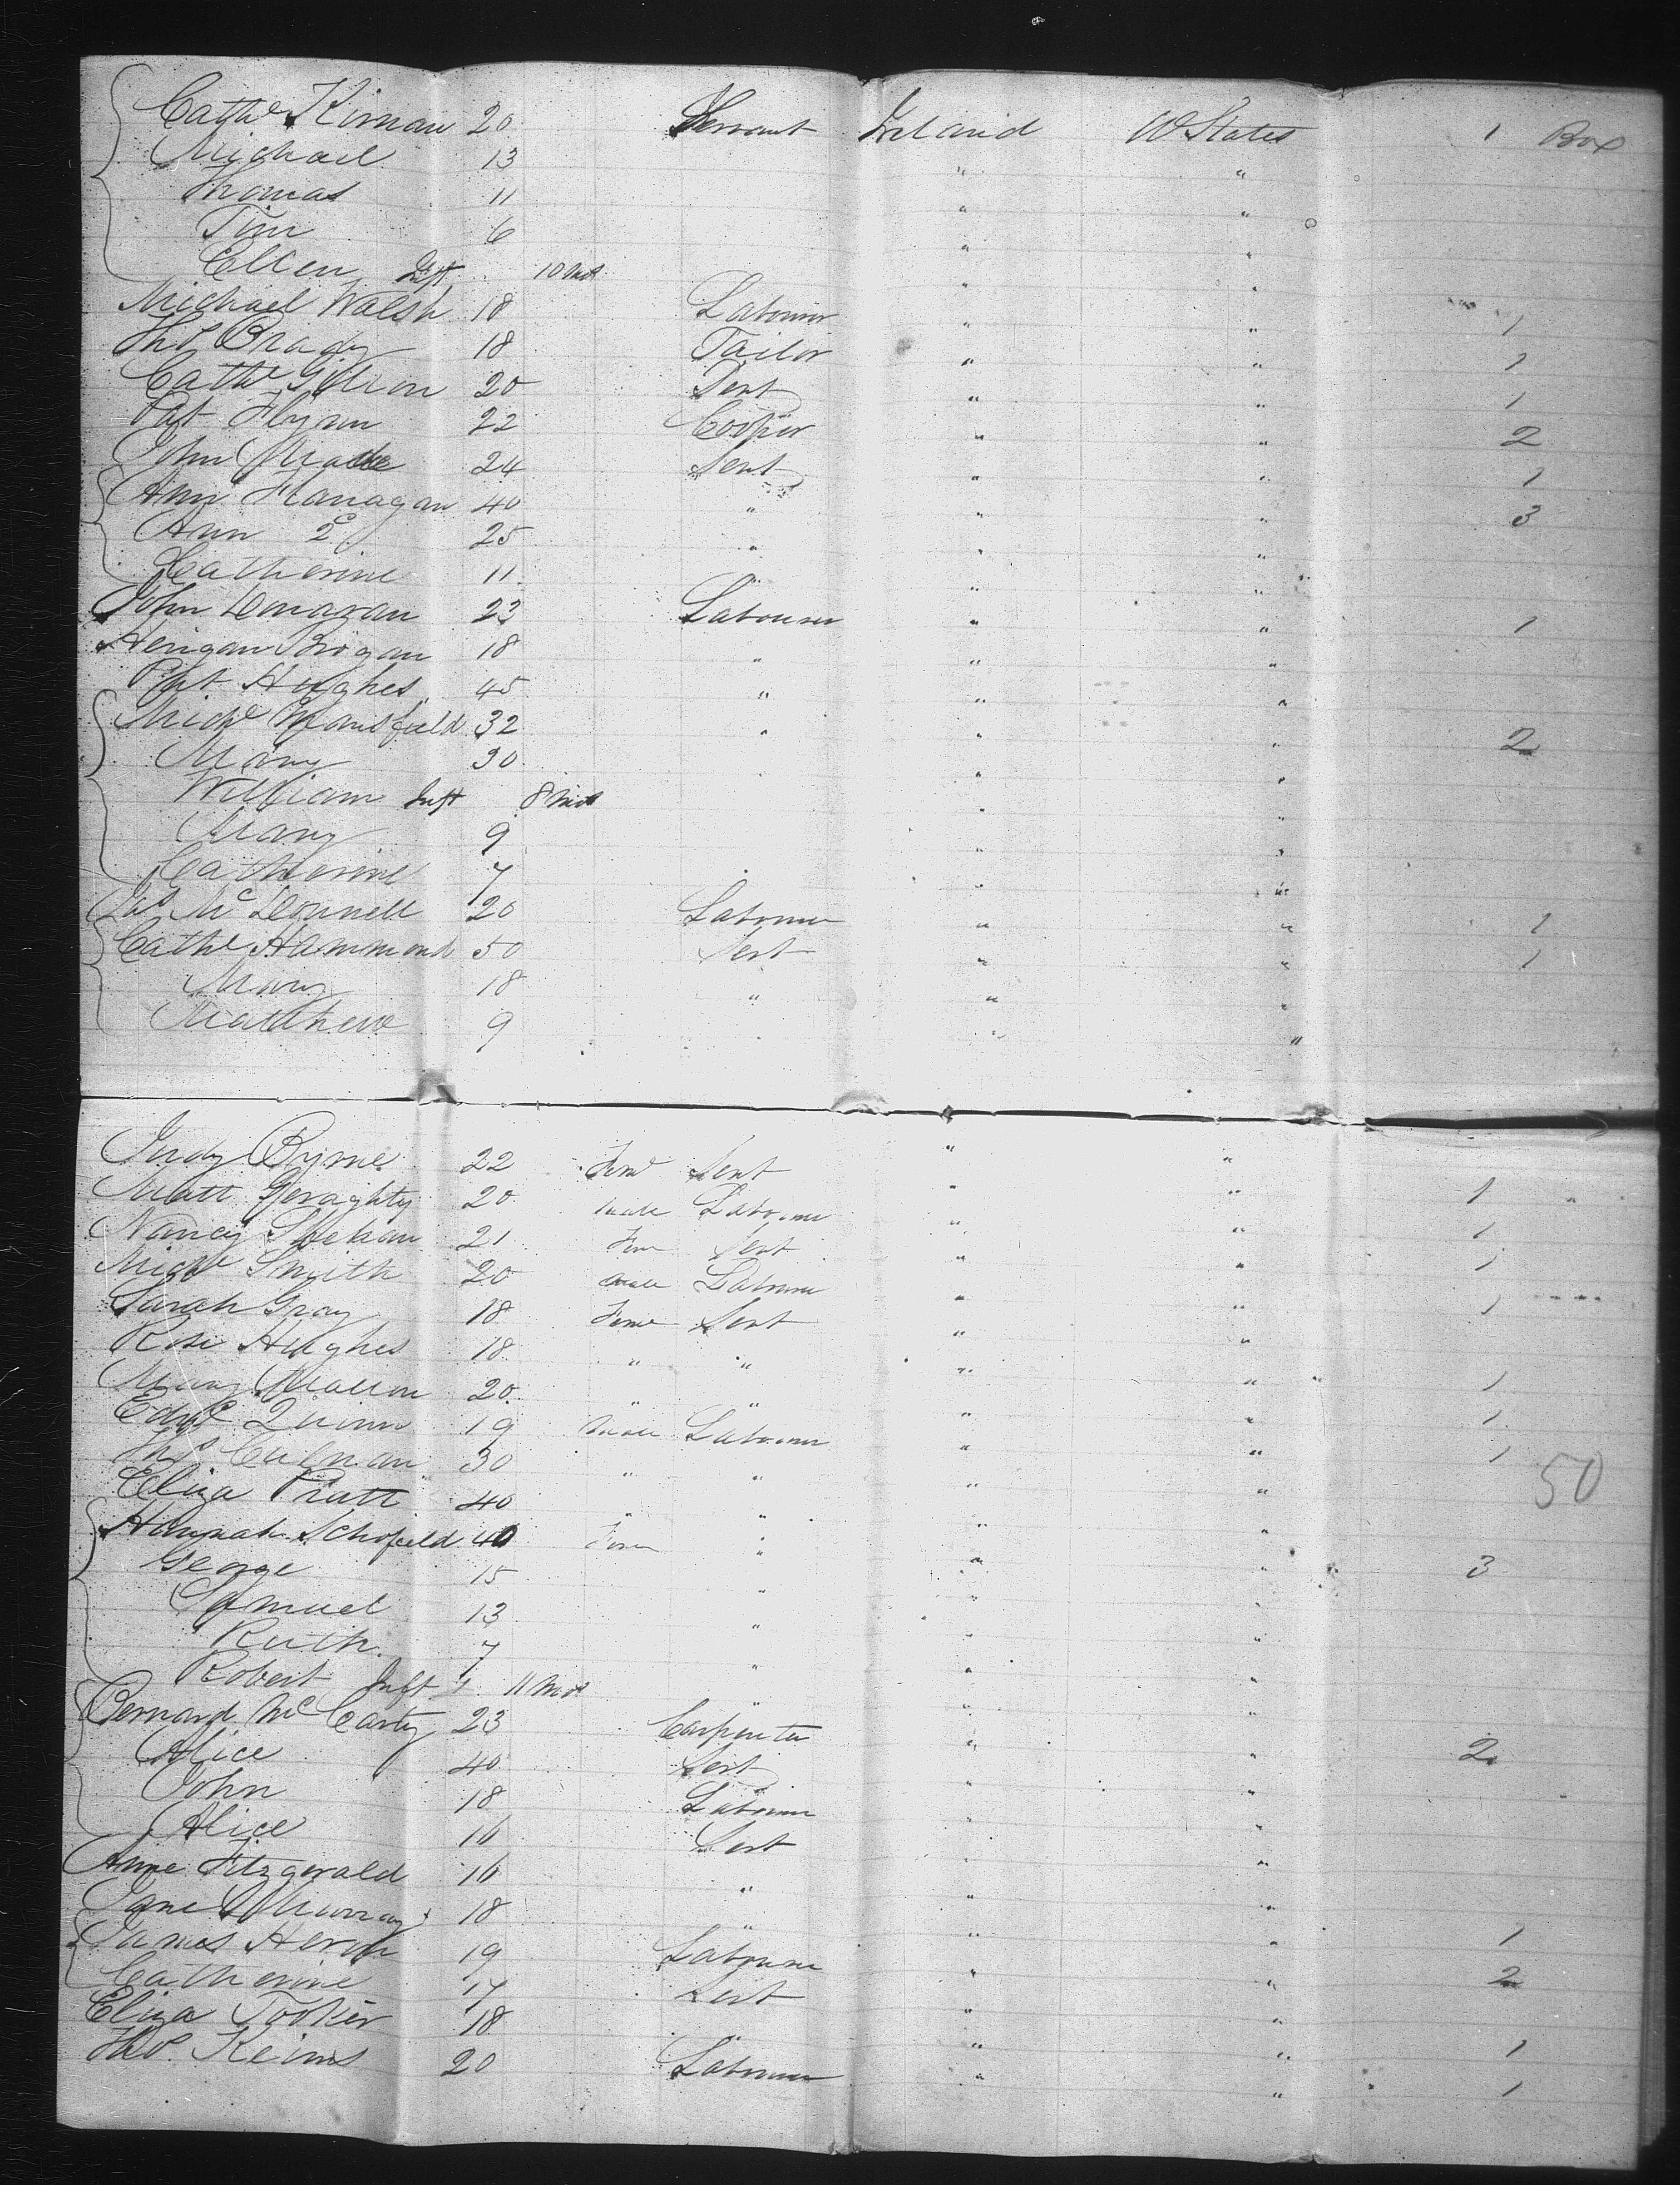 Cathe Kirnan 20 Servant Ireland U States 1 Box
Michael 13 " "
Thomas 11 " "
Tim 6 " "
Ellen Inft 10 mos " "
Michael Walsh 18 Labourer " " 1
Thos Brady 18 Tailor " " 1
Cathe 20 Sert " " 1
Pat Flynn 22 Cooper " " 2
John 24 Sert " " 1
Ann Flanagan 40 " " " 3
Ann 2d 25 " " "
Catherine 11 " " "
John Donavan 23 Labourer " " 1
Brogan 18 " " "
Pat Hughes 45 " " "
Michl Mansfield 32 " " " 2
Mary 30 " "
William Inft 8 mos " "
Mary 9 " "
Catherine 7 " "
Jas McDonnell 20 Labourer " " 1
Cathe Hammond 50 Sert " " 1
Mary 18 " " "
Matthew 9 " "
Judy Byrne 22 Feme Sert " "
Matt Geraghty 20 male Labourer " " 1 "
Nancy Shehan 21 Fem Sert " " 1
Michl Smith 20 male Labourer " " 1
Sarah Gray 18 Feme Sert " " 1
Rose Hughes 18 " " " "
Mary Mallon 20 " " " " 1
Edwd Quinn 19 Male Labourer " " 1
Thos 30 " " " " 1
Eliza Pratt 40 " " " " 50
Hannah Schofield 40 Fem " " "
George 15 " " " 3
Samuel 13 " " "
Ruth 7 " " "
Robert Inft 11 mos " " "
Bernard McCarty 23 Carpenter " "
Alice 40 Sert " " 2
John 18 Labourer " "
Alice 16 Sert " "
Anne Fitzgerald 16 " " "
Jane Murray 18 " " "
James Heron 19 Labourer " " 1
Catherine 17 Sert " " 2
Eliza Tooker 18 " " "
Thos. Keirns 20 Labourer " " 1
" " 1